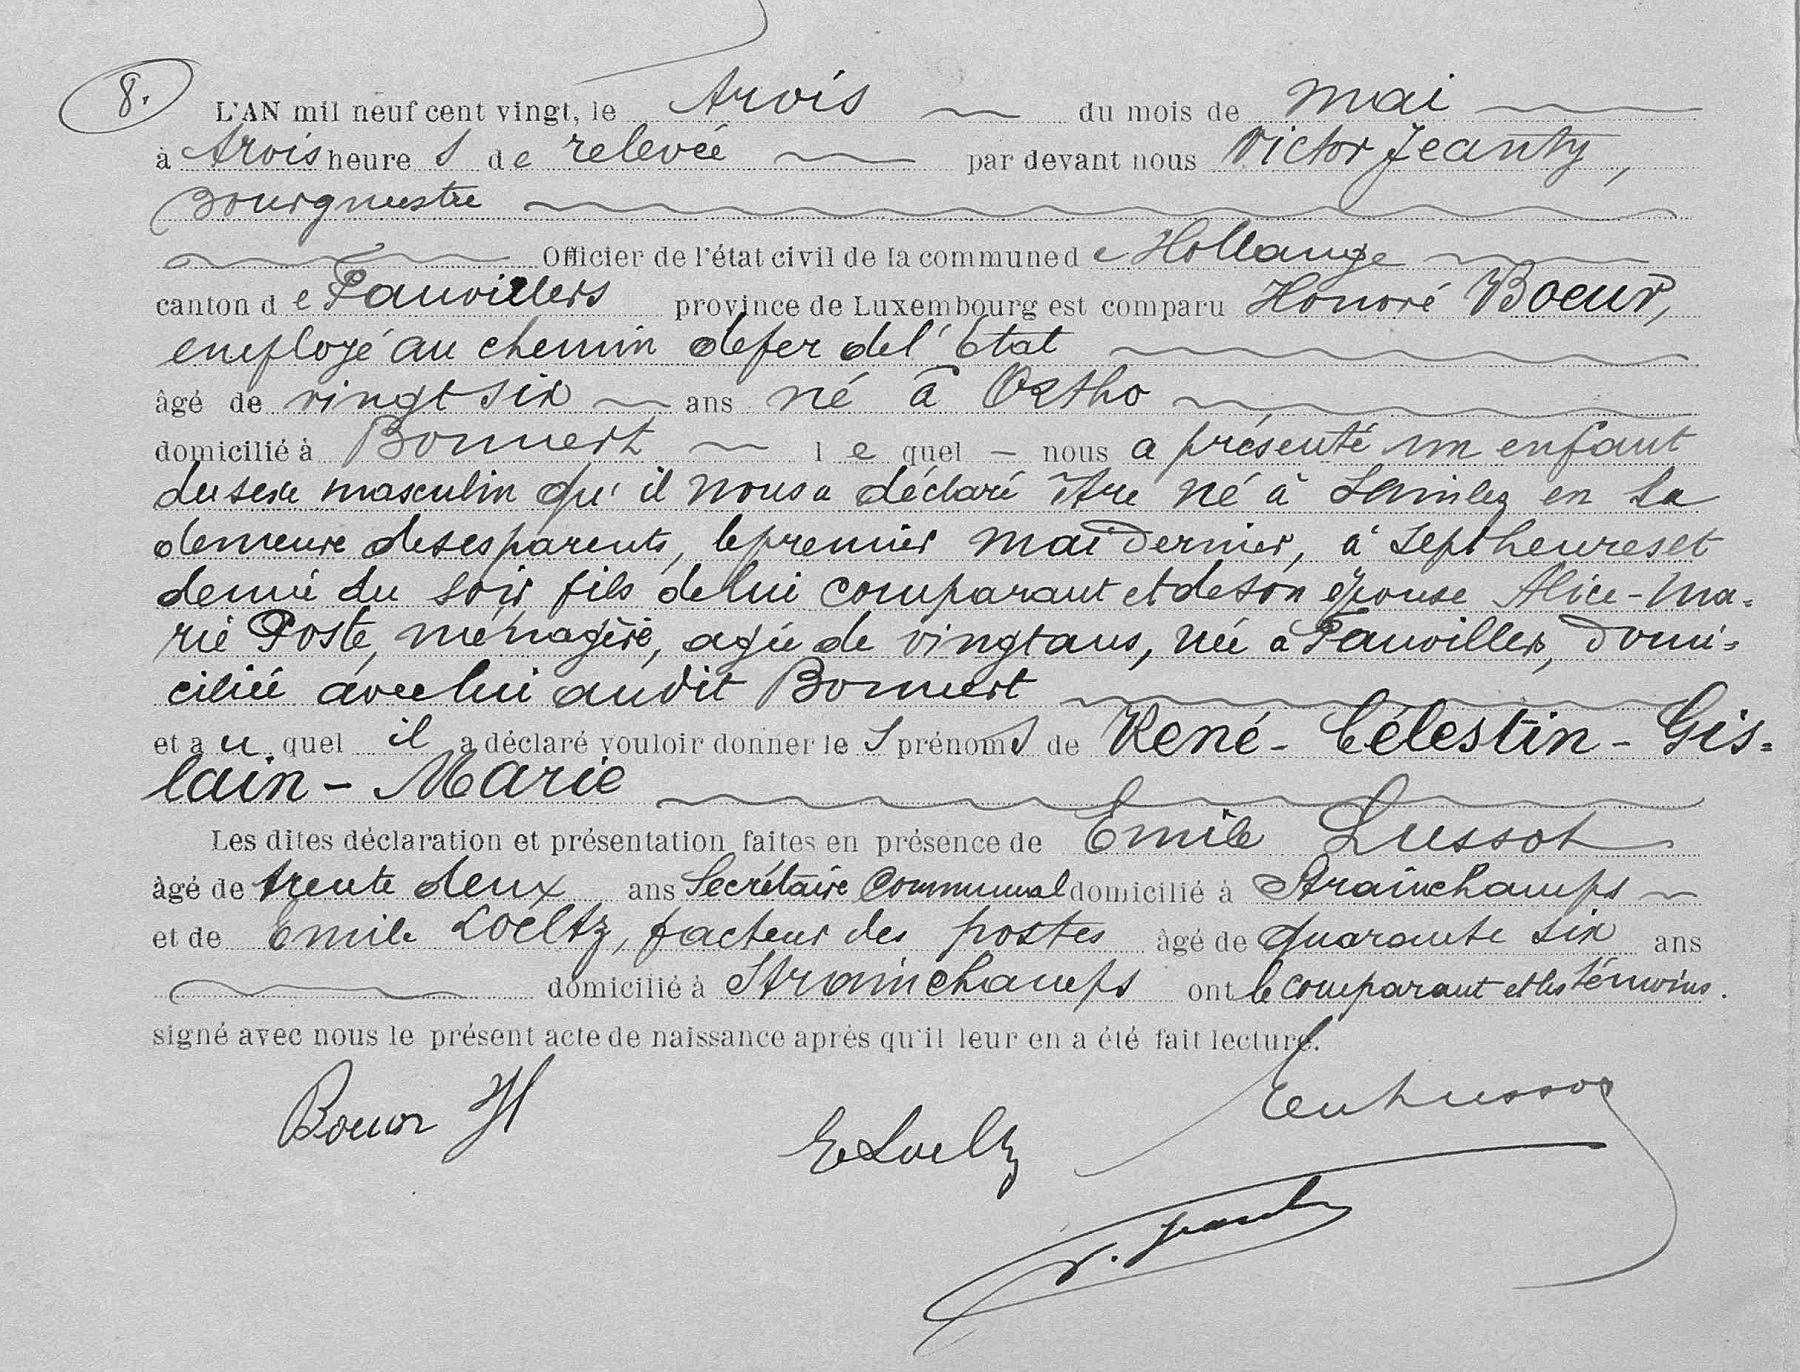 8.
L'AN mil neuf cent vingt, le trois du mois de mai
à trois heures de relevée par devant nous Victor Jeanty,
Bourgmestre
Officier de l'état civil de la commune de Hollange
canton de Fauvillers province de Luxembourg est comparu Honoré Boeur,
employé au chemin de fer de l'Etat
âgé de vingt six ans né à Ortho
domicilié à Bonnert lequel – nous a présenté un enfant
du sexe masculin qu'il nous a déclaré être né à Sainlez en la
demeure de ses parents, le premier mai dernier, à sept heures et
demie du soir fils de lui comparant et de son épouse Alice-Ma=
rie Poste, ménagère, agée de vingt ans, née à Fauvillers, domi=
ciliée avec lui audit Bonnert
et auquel il a déclaré vouloir donner les prénoms de René - Célestin - Gis=
lain - Marie
Les dites déclaration et présentation faites en présence de Emile Lussot
âgé de trente deux ans Secrétaire Communal domicilié à Strainchamps
et de Emile Loeltz, facteur des postes âgé de quarante six ans
domicilié à Strainchamps ont le comparant et les témoins.
signé avec nous le présent acte de naissance après qu'il leur en a été fait lecture.
Boeur H
E Loeltz
Em Lussot
V. Jeanty